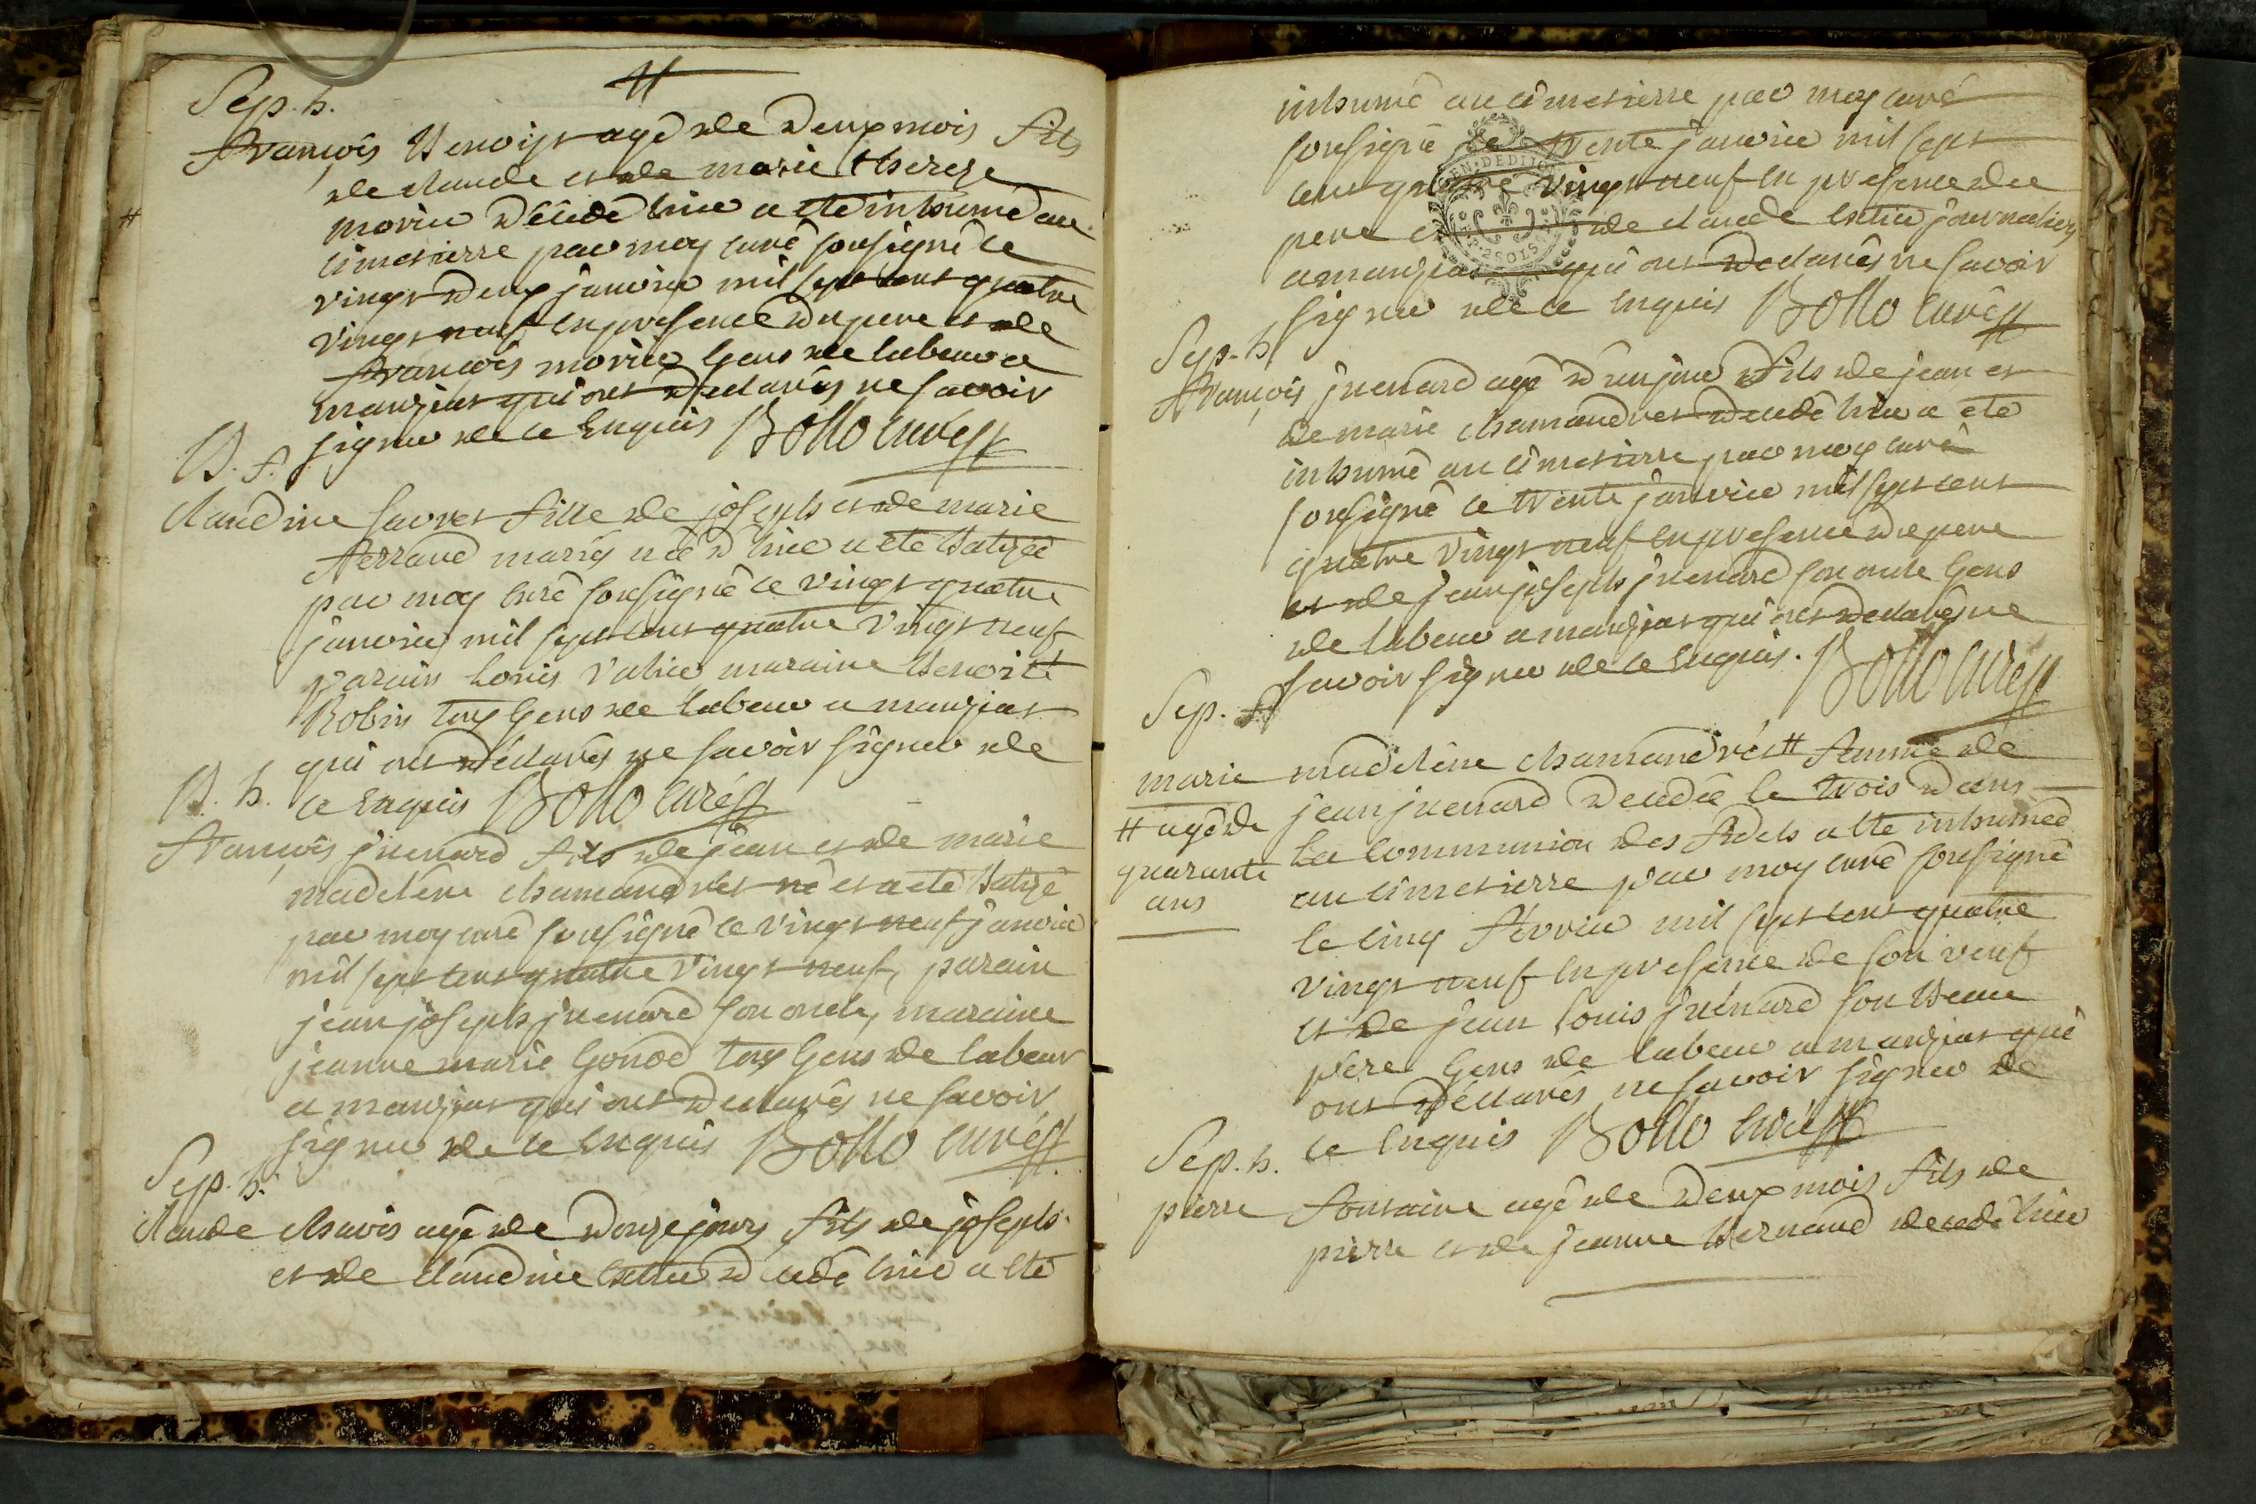 Sep. h.
françois Benoist agé de deux mois fils
de claude et de marie therese
morier décédé hier a eté inhumé au
cimetierre par moy curé sousigné le
vingt deux janvier mil sept cent quatre
vingt neuf en presence du pere et de
françois morier gens de labeur a
manziat qui ont declarés ne savoir
signer de ce enquis Bollo curé
B. f.
claudine favret fille de joseph et de marie
ferrand mariés née d hier a eté batizée
par moy curé sousigné le vingt quatre
janvier mil sept cent quatre vingt neuf
parain louis maraine Benoite
Robin tous gens de labeur a manziat
qui ont déclarés ne savoir signer de
ce enquis Bollo curé
B. h.
françois juenard fils de jean et de marie
madeléne chamandret né et a eté batizé
par moy curé sousigné le vingt neuf janvier
mil sept cent quatre vingt neuf, parain
jean joseph juenard son oncle, maraine
jeanne marie gonod tous gens de labeur
a manziat qui ont declarés ne savoir
signer de ce enquis Bollo curé
Sep. h.
claude chavis agé de douze jours fils de joseph
et de claudine décédé hier a eté
inhumé au cimetierre par moy curé
sousigné le trente janvier mil sept
cent quatre vingt neuf en presence du
pere et de claude journaliers
a manziat qui ont declarés ne savoir
signer de ce enquis Bollo curé
Sep. h
françois juenard agé d'un jour fils de jean et
de marie chamandret decedé hier a eté
inhumé au cimetierre par moy curé
sousigné le trente janvier mil sept cent
quatre vingt neuf en presence du pere
et de jean joseph juenard son oncle gens
de labeur a manziat qui ont declarés ne
savoir signer de ce enquis. Bollo curé
Sep. f
marie madeléne chamandrét # femme de
# agé de
quarante
ans
jean juenard decedée le trois dans
la communion des fidels a eté inhumeé
au cimetierre par moy curé sousigné
le cinq fevrier mil sept cent quatre
vingt neuf en presence de son veuf
et de jean louis juenard son beau
pére gens de labeur a manziat qui
ont déclarés ne savoir signer de
ce enquis Bollo curé
Sep. h.
pierre fontaine agé de deux mois fils de
pierre et de jeanne bernard decedé hier